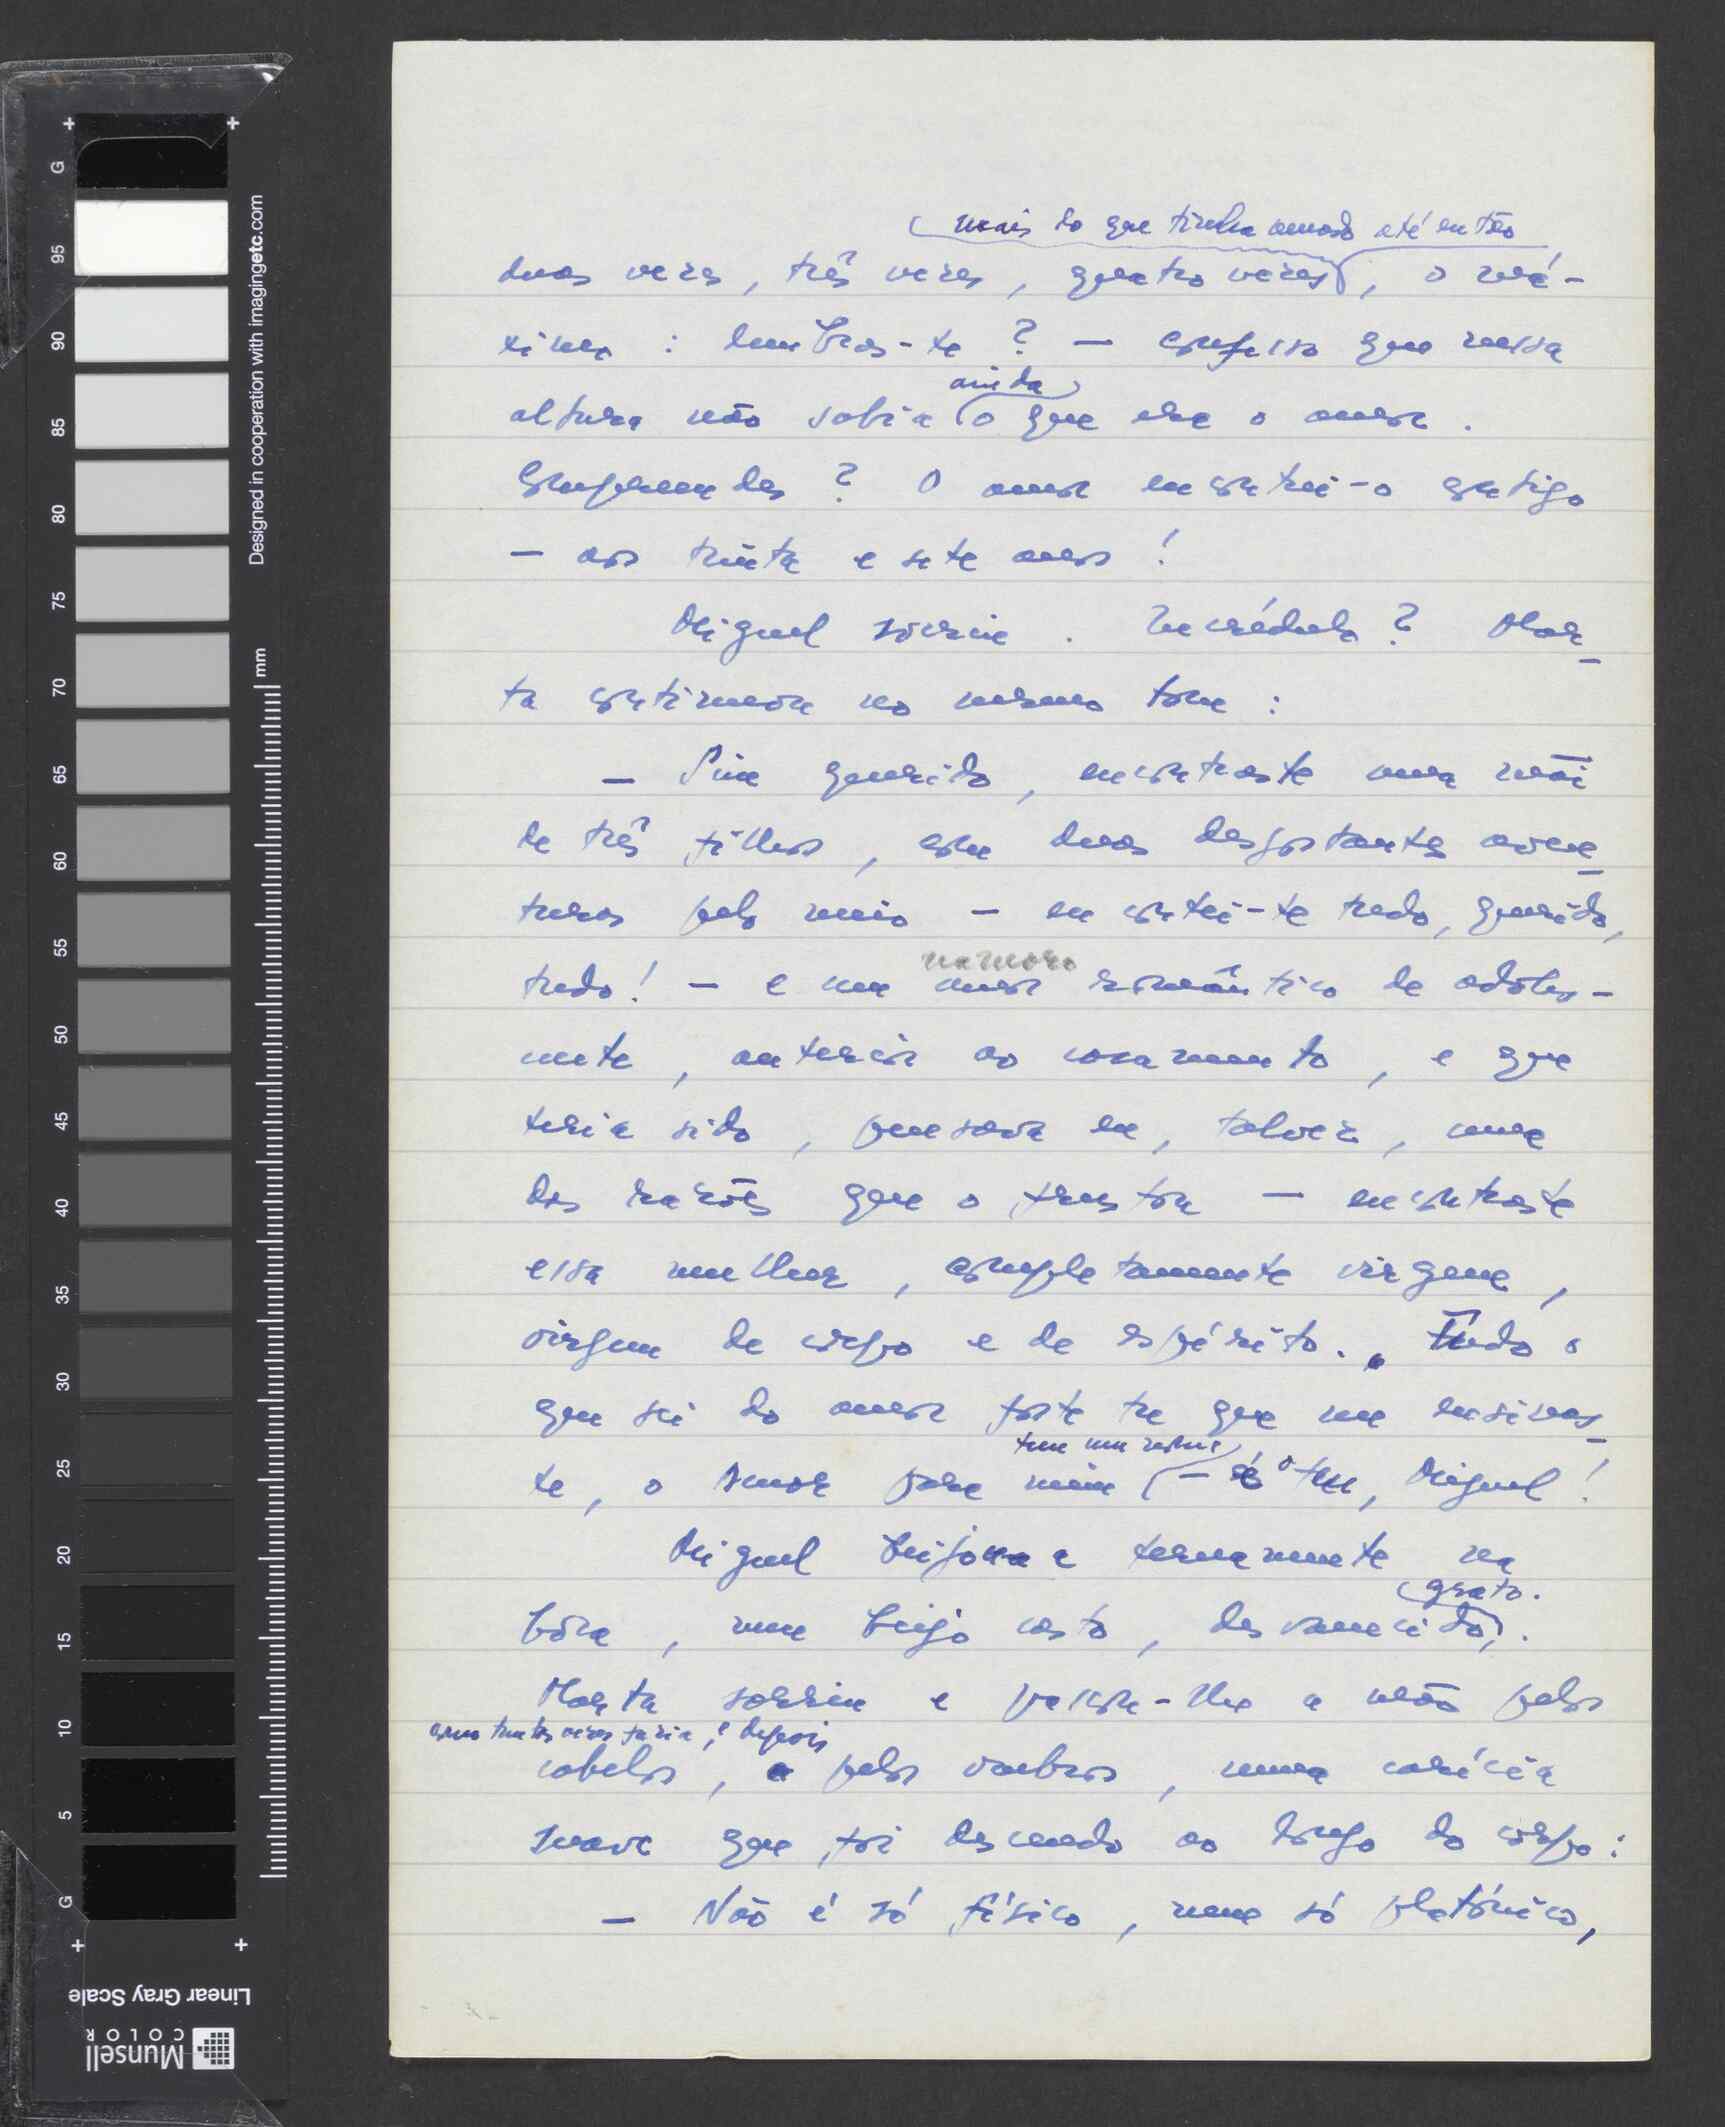 mais do que tinha amado até então
duas vezes, três vezes, quatro vezes, o má-
ximo : lembras-te ? — confesso que nessa
ainda
altura não sabia o que era o amor.
Compreendes ? O amor encontrei-o contigo
— aos trinta e sete anos !
Miguel sorriu. Incrédulo ? Mar-
ta continuou no mesmo tom :
— Sim querido, encontraste uma mãi
de três filhos, com duas desgostantes aven-
turas pelo meio — eu contei-te tudo, querido,
namoro
tudo ! — e um amor romântico de adoles-
cente, anterior ao casamento, e que
teria sido, pensava eu, talvez, uma
das razões que o frustou — encontraste
essa mulher, completamente virgem,
virgem de corpo e de espírito. Tudo o
que sei do amor foste tu que me ensinas-
tem um nome
te, o Amor para mim — é o teu, Miguel !
Miguel beijou-a ternamente na
grato.
bôca, num beijo casto, desvanecido.
Marta sorriu e passou-lhe a mão pelos
como tantas vezes fazia, e depois
cabelos, e pelos ombros, numa carícia
suave que foi descendo ao longo do corpo :
— Não é só físico, nem só platónico,
Designed in cooperation with imagingetc.com
mm
G
95
90
85
80
75
70
65
60
55
50
45
40
35
30
25
20
15
10
5
G
Linear Gray Scale
Munsell
COLOR